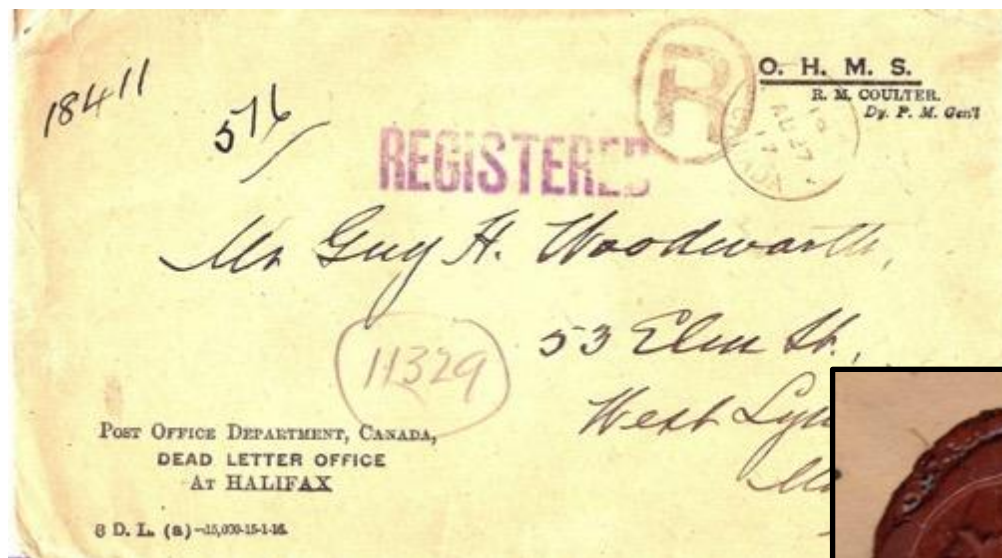 18411
576/
REGISTERED
R
O. H. M. S.
R. M. COULTER.
Dy. P. M. Gen'l
AU 27
17
CANADA
Mr Guy H. Woodworth,
53 Elm St.,
11329
West Lyn
POST OFFICE DEPARTMENT, CANADA,
DEAD LETTER OFFICE
AT HALIFAX
8 D. L. (a)-15,000-15-1-16.